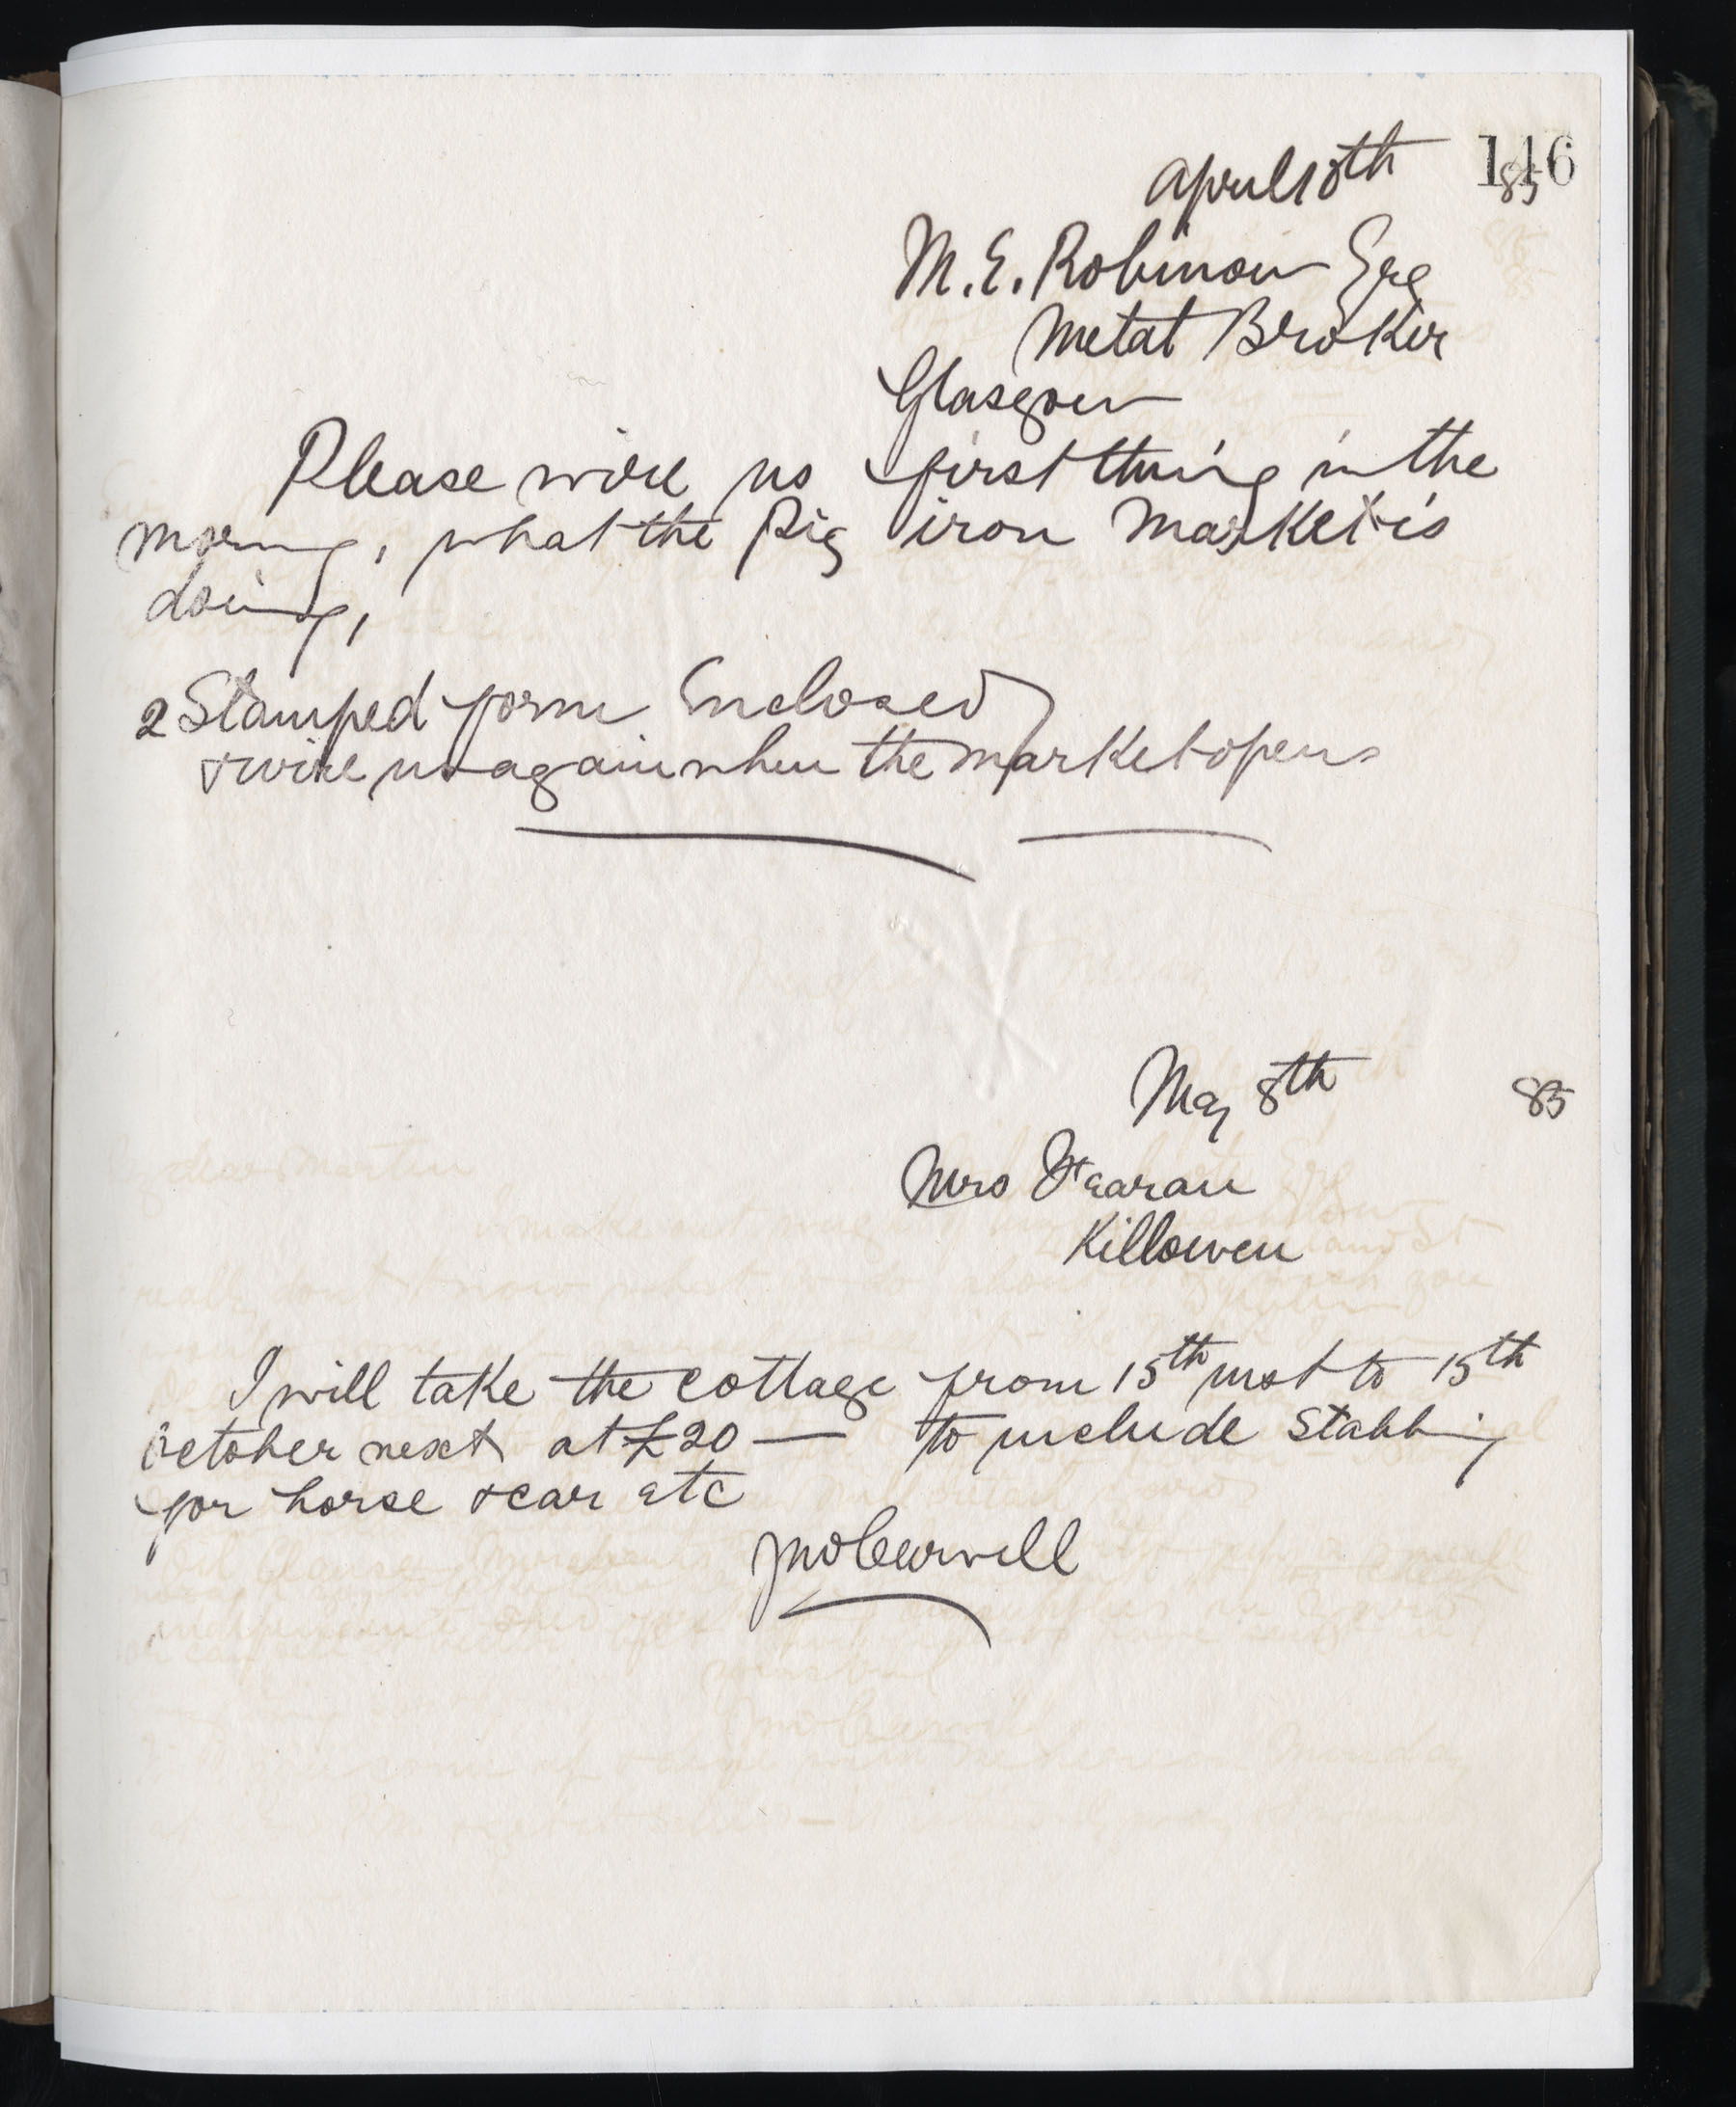 146
April 18th 85
M. E. Robinow Esq
Metal Broker
Glasgow
Please wire us first thing in the
morning, what the Pig iron Market is
doing,
2 Stamped forms Enclosed
& wire us again when the market opens
May 8th 85
Mrs
Killowen
I will take the cottage from 15th inst to 15th
October next at £20 — to include Stabling
for horse & car etc
Jno Curvell